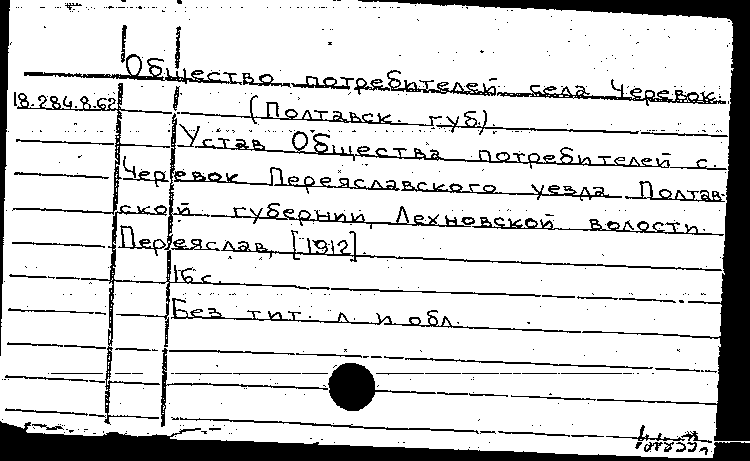 Общество потребителей села Черевок.
18.284.8.62 (Полтавск. губ.).
Устав Общества потребителей с.
Черевок Переяславского уезда Полтав-
ской губернии, Лехновской волости.
Переяслав, [1912].
16 с.
Без тит. л. и обл.